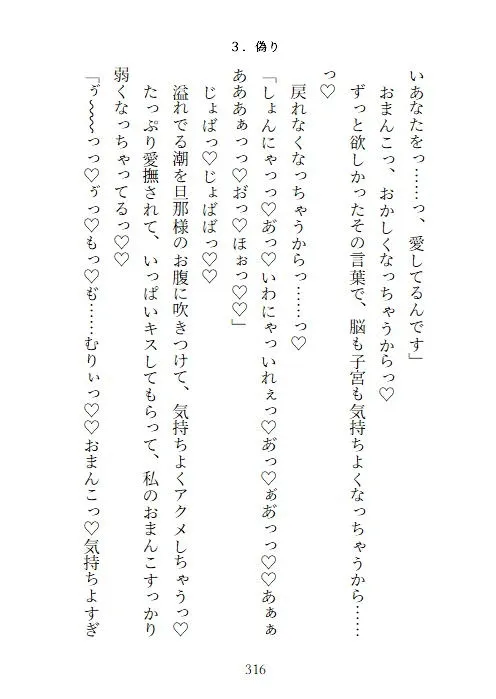 3．偽り
いあなたをっ……っ、愛してるんです」
おまんこっ、おかしくなっちゃうからっ♡
ずっと欲しかったその言葉で、脳も子宮も気持ちよくなっちゃうから……
っ♡
戻れなくなっちゃうからっ……っ♡
「しょんにゃっっ♡あ゙っ♡いわにゃっいれぇっ♡あ゙っ♡ぁ゙あ゙っっ♡♡あぁぁ
あああぁっっ♡お゙っ♡ほぉっ♡♡」
じょばっ♡じょばばっ♡♡
溢れでる潮を旦那様のお腹に吹きつけて、気持ちよくアクメしちゃうっ♡
たっぷり愛撫されて、いっぱいキスしてもらって、私のおまんこすっかり
弱くなっちゃってるっ♡♡
「ゔ〜〜〜っっ♡ゔっ♡もっ♡も゙……むりぃっ♡♡おまんこっ♡気持ちよすぎ
316